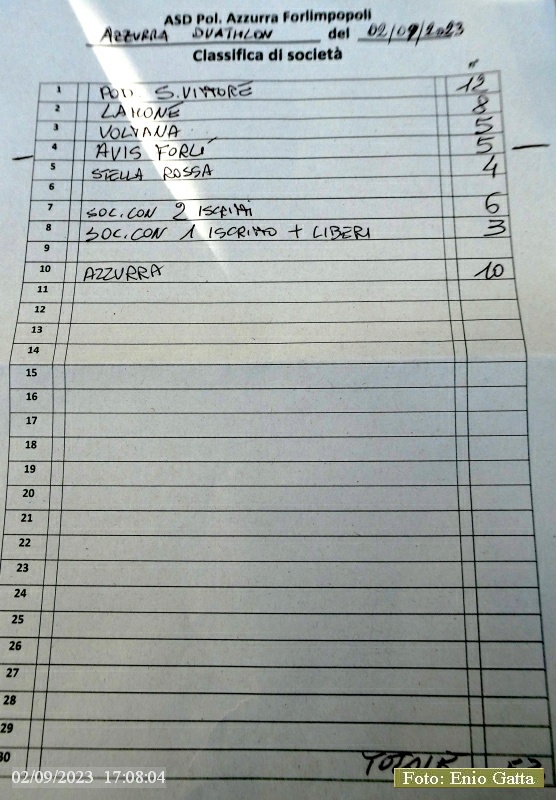 ASD Pol. Azzurra Forlimpopoli
AZZURRA DUATHLON del 02/09/2023
Classifica di società
n°
1 POD. S. VITTORE 12
2 LAMONE 8
3 VOLTANA 5
4 AVIS FORLÍ 5
5 STELLA ROSSA 4
6
7 SOC. CON 2 ISCRITTI 6
8 SOC. CON 1 ISCRITTO + LIBERI 3
9
10 AZZURRA 10
11
12
13
14
15
16
17
18
19
20
21
22
23
24
25
26
27
28
29
30 TOTALE
02/09/2023 17:08:04
Foto: Enio Gatta